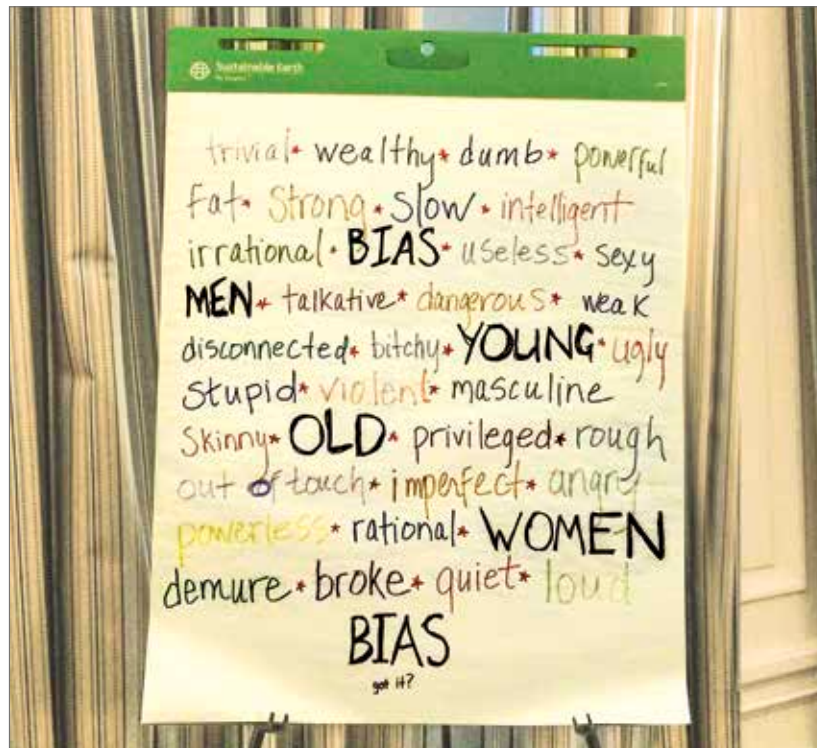 Sustainable Earth
trivial * wealthy * dumb * powerful
fat * strong * slow * intelligent
irrational * BIAS * useless * sexy
MEN * talkative * dangerous * weak
disconnected * bitchy * YOUNG * ugly
stupid * violent * masculine
skinny * OLD * privileged * rough
out of touch * imperfect * angry
powerless * rational * WOMEN
demure * broke * quiet * loud
BIAS
got it?